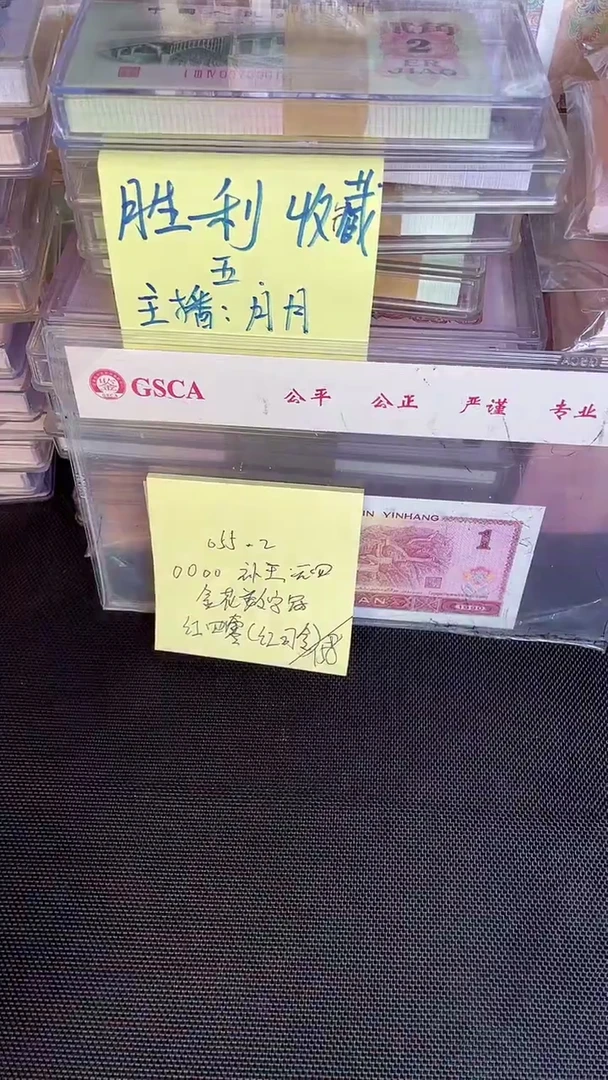 贰角
2
ER
JIAO
胜利收藏
五
主播：月月
GSCA 公平 公正 严谨 专业
IN YINHANG
1
055.2
0000 补王 无四
金花数字冠
红四零(红司令)